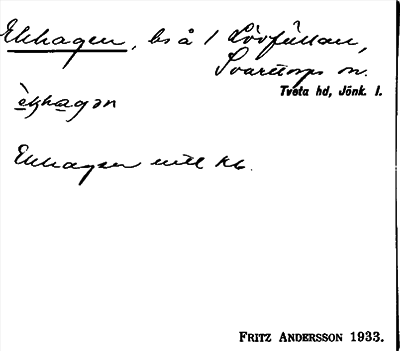 Ekhagen, bs å 1 Lövfällan,
Svarttorps sn.
Tveta hd, Jönk. l.
Ekhagen enl kb.
FRITZ ANDERSSON 1933.